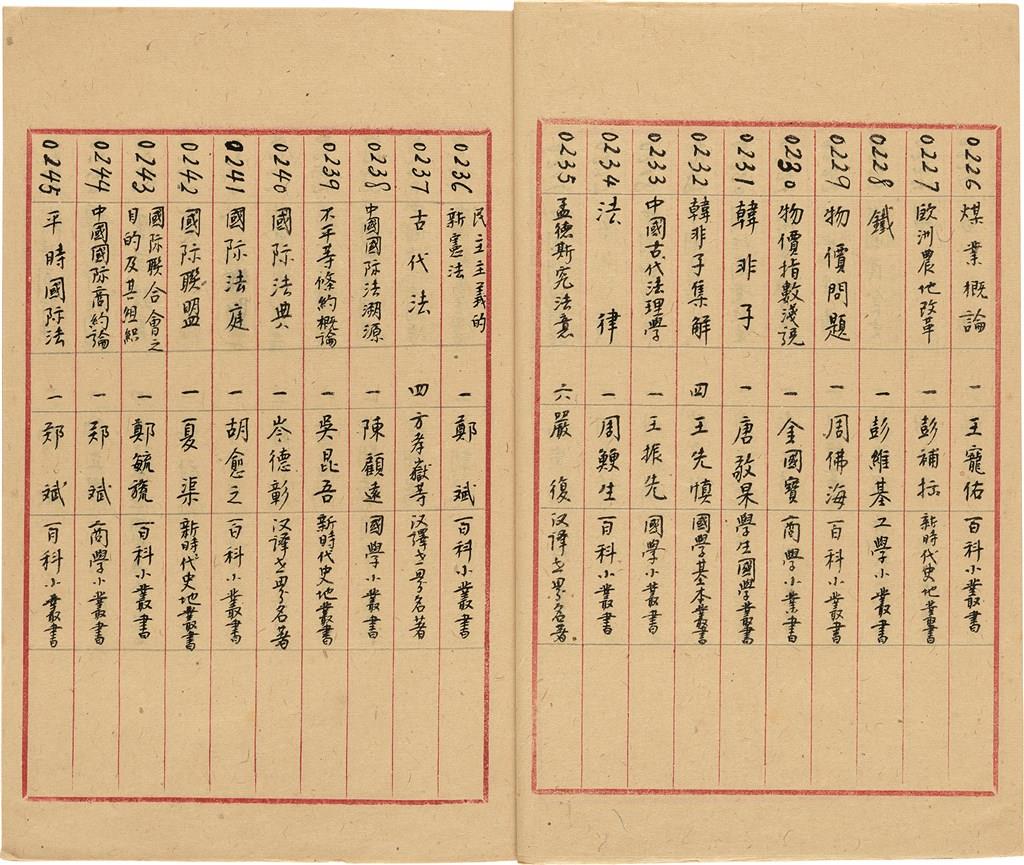 0226 煤業概論 一 王寵佑 百科小叢書
0227 欧洲農地改革 一 彭補拙 新時代史地叢書
0228 鐵 一 彭維基 工學小叢書
0229 物價問題 一 周佛海 百科小叢書
0230 物價指數淺說 一 金國寶 商學小叢書
0231 韓非子 一 唐敬杲 學生國學叢書
0232 韓非子集解 四 王先慎 國學基本叢書
0233 中國古代法理學 一 王振先 國學小叢書
0234 法律 一 周鯁生 百科小叢書
0235 孟德斯宪法意 六 嚴復 汉譯世界名著
0236 民主主義的新憲法 一 鄭斌 百科小叢書
0237 古代法 四 方孝嶽等 汉譯世界名著
0238 中國國际法溯源 一 陳顧遠 國學小叢書
0239 不平等條約概論 一 吳昆吾 新時代史地叢書
0240 國际法典 一 岑德彰 汉譯世界名著
0241 國际法庭 一 胡愈之 百科小叢書
0242 國际联盟 一 夏渠 新時代史地叢書
0243 國际联合會之目的及其组織 一 鄭毓旒 百科小叢書
0244 中國國际商約論 一 郑斌 商學小叢書
0245 平時國际法 一 郑斌 百科小叢書